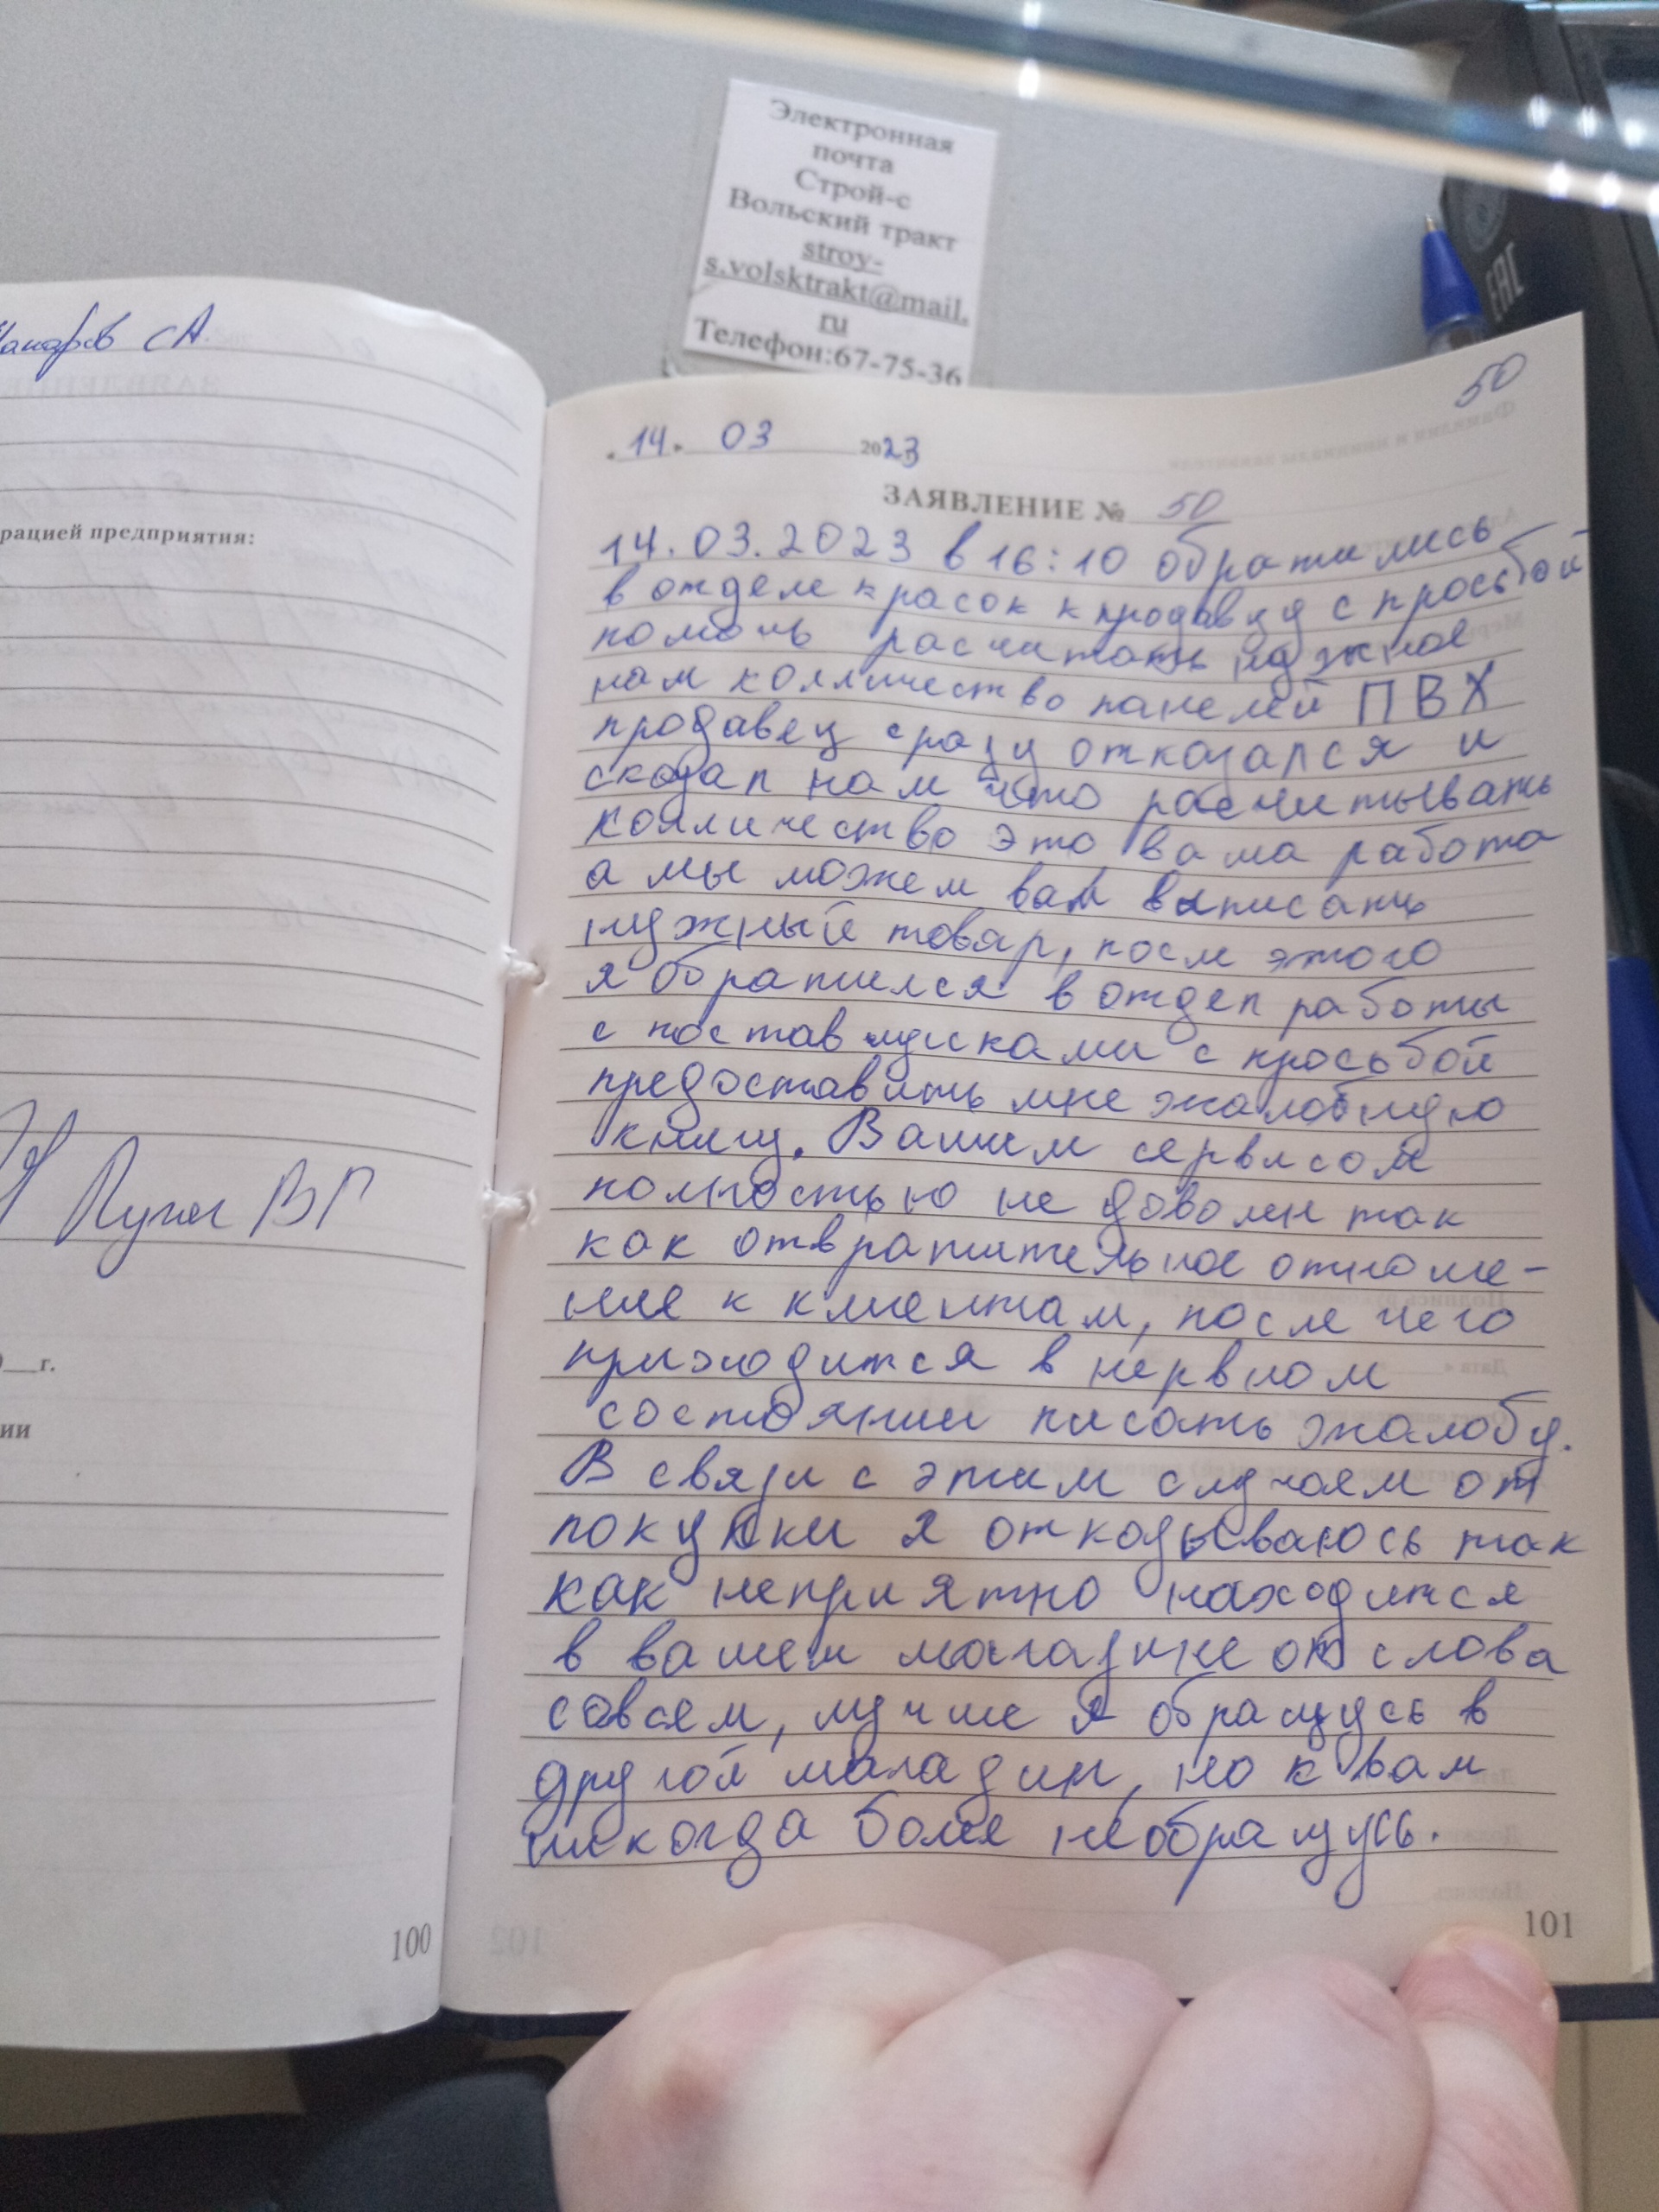 Электронная
почта
Строй-с
Вольский тракт
stroy-
s.volsktrakt@mail.
ru
Телефон:67-75-36
ЕАС
СА
рацией предприятия:
ВГ
г.
ии
100
50
14. 03 2023
ЗАЯВЛЕНИЕ № 50
14.03.2023 в 16:10 обратились
в отделе красок к продавцу с просьбой
помочь расчитать нужное
нам колличество панелей ПВХ
продавец сразу отказался и
сказал нам что расчитывать
колличество это ваша работа
а мы можем вам выписать
нужный товар, после этого
я обратился в отдел работы
с поставщиками с просьбой
предоставить мне жалобную
книгу. Вашим сервисом
полностью не доволен так
как отвратительное отноше-
ние к клиентам, после чего
приходится в нервном
состоянии писать жалобу.
В связи с этим случаем от
покупки я отказываюсь так
как неприятно находится
в вашем магазине от слова
совсем, лучше я обращусь в
другой магазин, но к вам
никогда более необращусь.
101